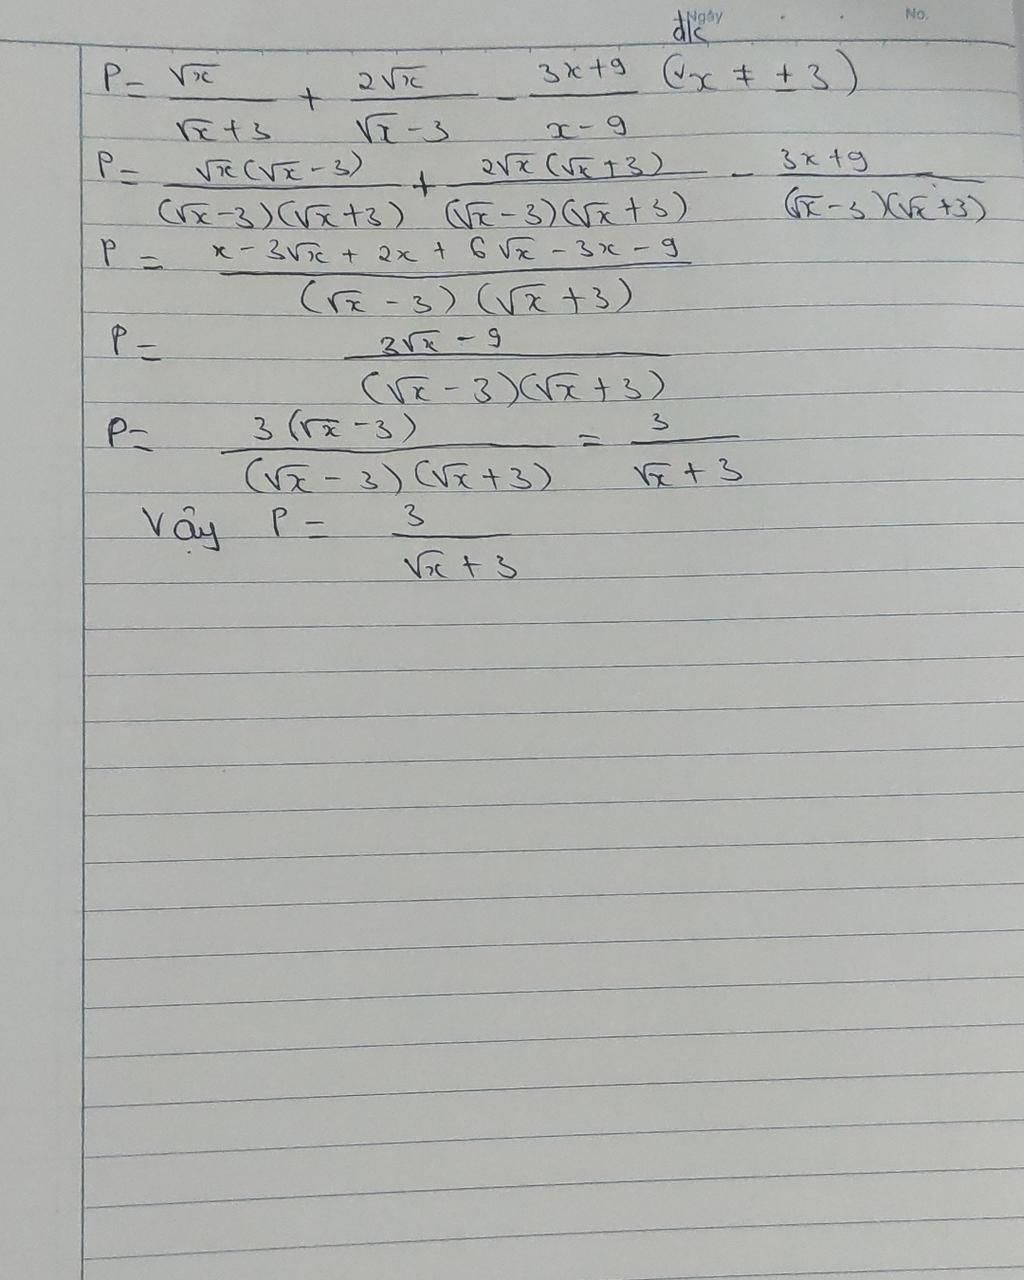 Ngày No.
đk
P = √x/(√x + 3) + 2√x/(√x - 3) - (3x + 9)/(x - 9) (√x ≠ ± 3)
P = √x(√x - 3)/((√x - 3)(√x + 3)) + 2√x(√x + 3)/((√x - 3)(√x + 3)) - (3x + 9)/((√x - 3)(√x + 3))
P = (x - 3√x + 2x + 6√x - 3x - 9)/((√x - 3)(√x + 3))
P = (3√x - 9)/((√x - 3)(√x + 3))
P = 3(√x - 3)/((√x - 3)(√x + 3)) = 3/(√x + 3)
Vậy P = 3/(√x + 3)